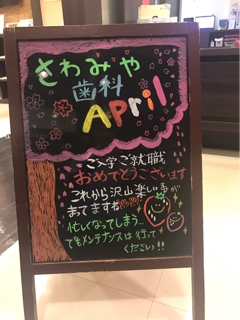 さわみや
歯科
April
ご入学 ご就職
おめでとうございます
これから沢山楽しい事が
まってますね
忙しくなってしまう…
でもメンテナンスは行って
ください!!